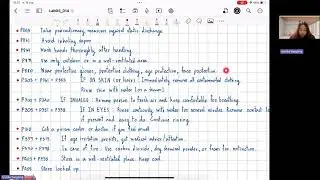 LANDS_014
• P243 Take precautionary measures against static discharge
• P261 Avoid inhaling vapor
• P264 Wash hands thoroughly after handling
• P271 Use only outdoors or in a well-ventilated area.
• P280 Wear protective gloves, protective clothing, eye protection, face protection.
• P303 + P361 + P353 IF ON SKIN (or hair): Immediately remove all contaminated clothing.
Rinse skin with water (or a shower)
• P304 + P340 IF INHALED: Remove person to fresh air and keep comfortable for breathing.
IF IN EYES: Rinse cautiously with water for several minutes. Remove contact lenses, if
present and easy to do. Continue rinsing
• P312 Call a poison center or doctor if you feel unwell
• If eye irritation persists, get medical advice/attention.
In case of fire: Use carbon dioxide, dry chemical powder, or foam for extinction.
• P403 + Store in a well-ventilated place. Keep cool.
• P405 Store locked up.